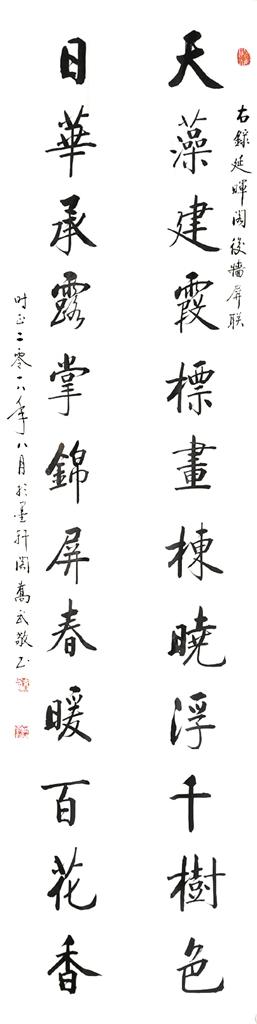 右錄延暉閣後牆屏联
天藻建霞標畫棟曉浮千樹色
日華承露掌錦屏春暖百花香
时正二零一八年八月於墨轩阁萬武敬书